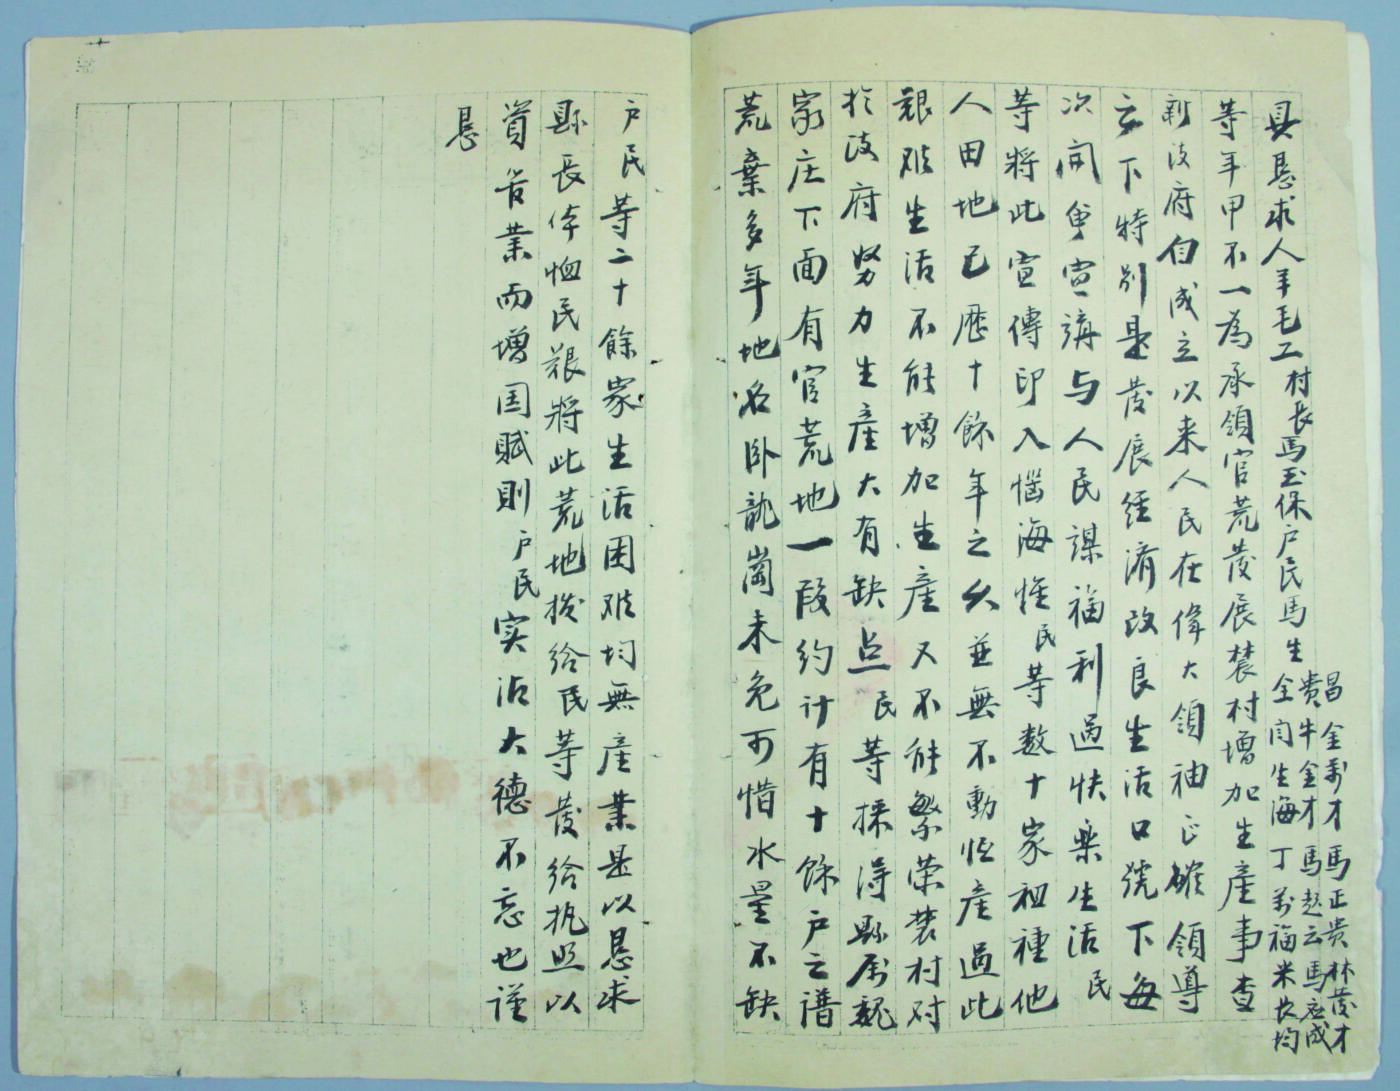 具恳求人羊毛工村長馬玉保户民馬生
昌金萬才馬正贵林茂才
贵牛金才馬赵云馬应成
全闫生海丁萬福米长均
等年甲不一為承領官荒發展農村增加生產事查
新政府自成立以来人民在偉大領袖正確領導
之下特别是發展经濟改良生活口號下每
次開會宣講与人民謀福利過快樂生活民
等將此宣傳印入惱海惟民等数十家祖種他
人田地已歷十餘年之久並無不動恒產過此
艱难生活不能增加生產又不能繁荣農村对
於政府努力生產大有缺点民等採得縣属魏
家庄下面有官荒地一段约计有十餘户之譜
荒棄多年地名卧龍崗未免可惜水量不缺
户民等二十餘家生活困难均無產業是以恳求
縣長体恤民艱將此荒地拨给民等發给执照以
資各業而增国賦則户民实沾大德不忘也谨
恳